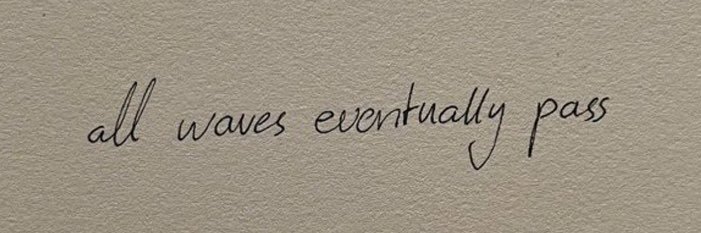 all waves eventually pass